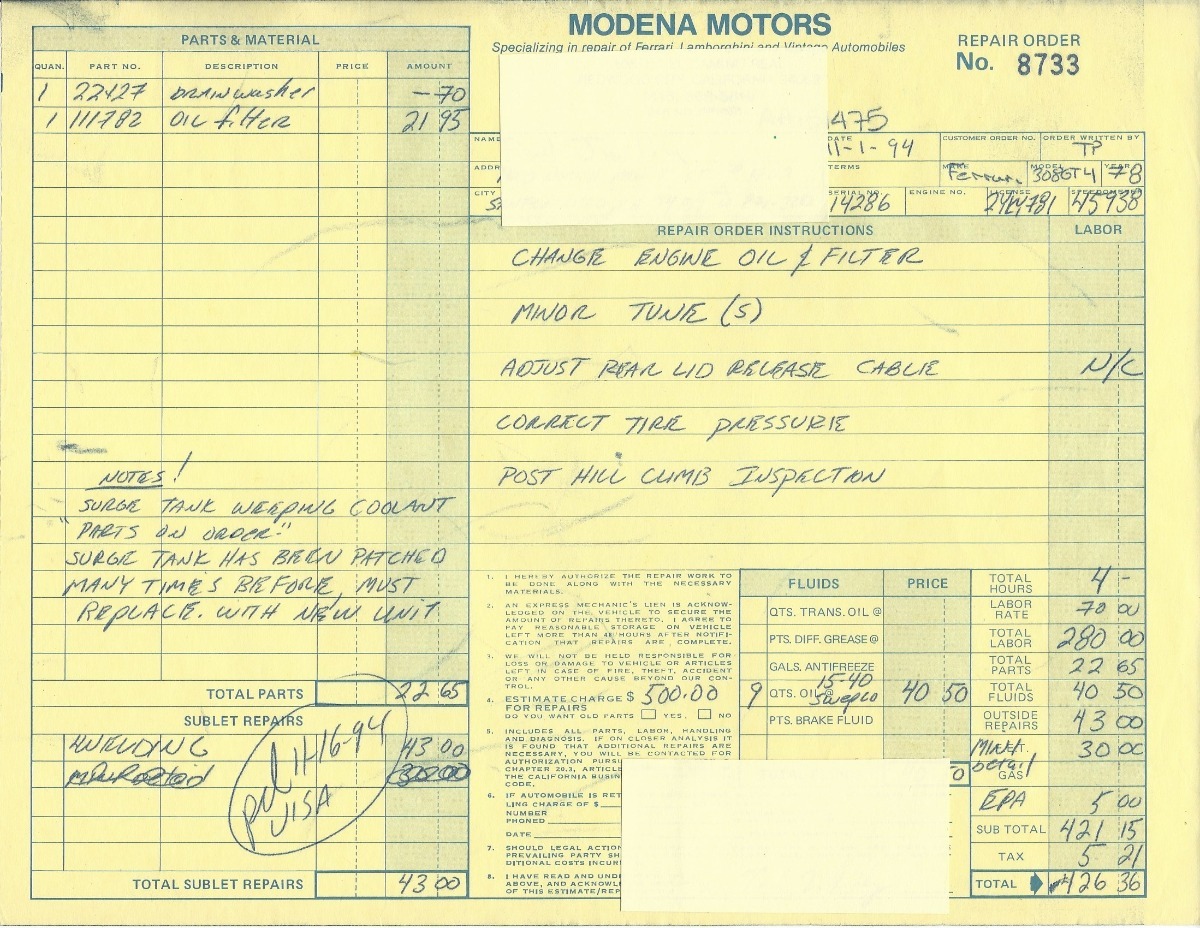 MODENA MOTORS
Specializing in repair of Ferrari, Lamborghini and Vintage Automobiles
REPAIR ORDER
No. 8733
PARTS & MATERIAL
QUAN. PART NO. DESCRIPTION PRICE AMOUNT
1 22427 DRAINWASHER — 70
1 111782 OIL filter 21 95
1475
NAME
DATE 11-1-94
CUSTOMER ORDER NO.
ORDER WRITTEN BY TP
ADDR
TERMS
MAKE Ferrari
MODEL 308GT4
YEAR 78
CITY
SERIAL NO. 14286
ENGINE NO.
LICENSE
SPEEDOMETER 45938
REPAIR ORDER INSTRUCTIONS LABOR
CHANGE ENGINE OIL & FILTER
MINOR TUNE (S)
ADJUST REAR LID RELEASE CABLE N/C
CORRECT TIRE PRESSURE
POST HILL CLIMB INSPECTION
NOTES!
SURGE TANK WEEPING COOLANT
"PARTS ON ORDER."
SURGE TANK HAS BEEN PATCHED
MANY TIMES BEFORE, MUST
REPLACE. WITH NEW UNIT
TOTAL PARTS 22 65
SUBLET REPAIRS
WELDING 43 00
pd 11-16-94
VISA
TOTAL SUBLET REPAIRS 43 00
1. I HEREBY AUTHORIZE THE REPAIR WORK TO
BE DONE ALONG WITH THE NECESSARY
MATERIALS.
2. AN EXPRESS MECHANIC'S LIEN IS ACKNOW-
LEDGED ON THE VEHICLE TO SECURE THE
AMOUNT OF REPAIRS THERETO. I AGREE TO
PAY REASONABLE STORAGE ON VEHICLE
LEFT MORE THAN 48 HOURS AFTER NOTIFI-
CATION THAT REPAIRS ARE COMPLETE.
3. WE WILL NOT BE HELD RESPONSIBLE FOR
LOSS OR DAMAGE TO VEHICLE OR ARTICLES
LEFT IN CASE OF FIRE, THEFT, ACCIDENT
OR ANY OTHER CAUSE BEYOND OUR CON-
TROL.
4. ESTIMATE CHARGE $ 500.00
FOR REPAIRS
DO YOU WANT OLD PARTS YES. NO
5. INCLUDES ALL PARTS, LABOR, HANDLING
AND DIAGNOSIS. IF ON CLOSER ANALYSIS IT
IS FOUND THAT ADDITIONAL REPAIRS ARE
NECESSARY, YOU WILL BE CONTACTED FOR
AUTHORIZATION PURSU
CHAPTER 20.3, ARTICLE
THE CALIFORNIA BUSIN
CODE.
6. IF AUTOMOBILE IS RET
LING CHARGE OF $
NUMBER
PHONED
DATE
7. SHOULD LEGAL ACTION
PREVAILING PARTY SH
DITIONAL COSTS INCUR
8. I HAVE READ AND UND
ABOVE, AND ACKNOWL
OF THIS ESTIMATE/REP
FLUIDS PRICE
QTS. TRANS. OIL @
PTS. DIFF. GREASE @
GALS. ANTIFREEZE
15-40
9 QTS. OIL @ Swepco 40 50
PTS. BRAKE FLUID
0
TOTAL HOURS 4 -
LABOR RATE 70 00
TOTAL LABOR 280 00
TOTAL PARTS 22 65
TOTAL FLUIDS 40 50
OUTSIDE REPAIRS 43 00
detail 30 00
GAS
EPA 5 00
SUB TOTAL 421 15
TAX 5 21
TOTAL 426 36